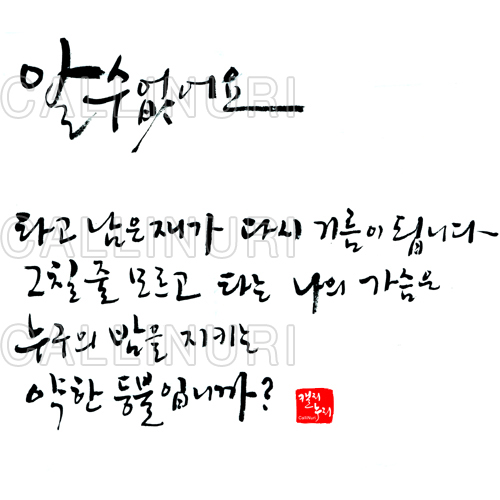 알 수 없어요
CALLINURI
타고 남은 재가 다시 기름이 됩니다
CALLINURI
그칠 줄 모르고 타는 나의 가슴은
누구의 밤을 지키는
CALLINURI
약한 등불입니까?
캘리
누리
CalliNuri